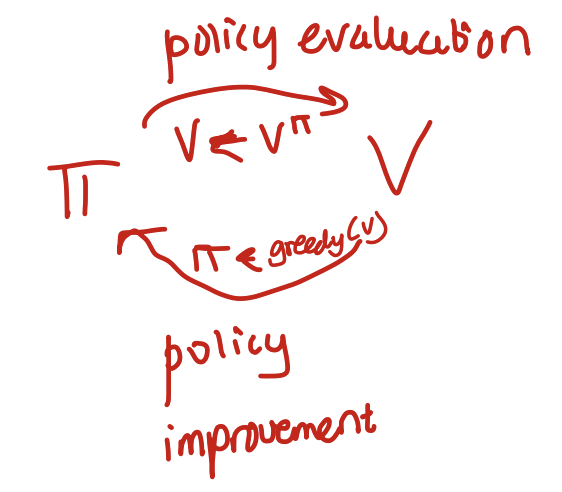 policy evaluation
V ← V^π
π V
π ← greedy(V)
policy
improvement